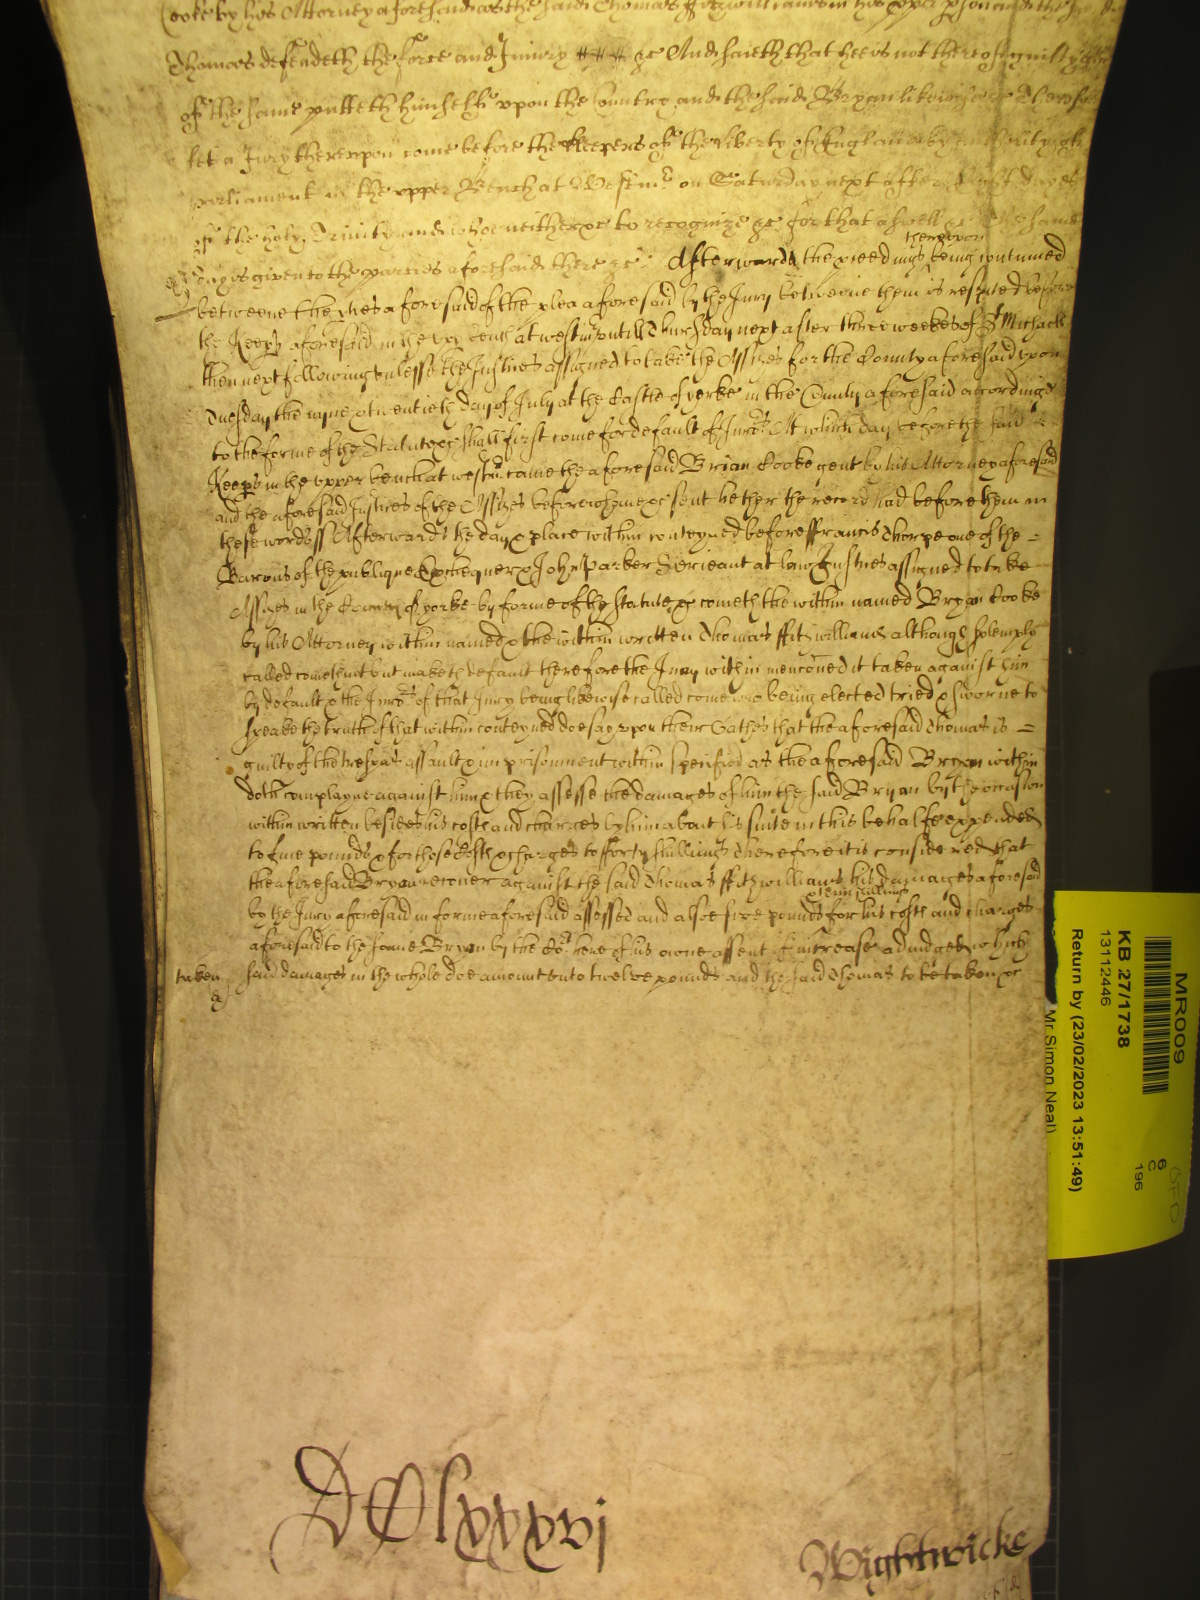 Cooke by his Attorney aforesaid as the said Thomas Fitzwilliams in his proper person and the said
Thomas defendeth the force and Injury &c And saieth that hee is not thereof guilty
of the same putteth himselfe upon the Countrey and the said Bryan likewise &c Therefore
let a Jury thereupon come before the Keepers of the liberty of England by authority of
parliament in the upper Bench at Westmr on Saturday next after eight dayes
of the holy Trinity and who neither &c to recognize &c for that aswell &c The same
day is given to the parties aforesaid there &c Afterwards the proceedings being continued
thereupon
betweene the pties aforesaid of the plea aforesaid by the Jury betweene them is respited before
the Keeps aforesaid in the upp bench at westmr untill Thursday next after three weekes of St Michaell
then next following unlesse the Justices assigned to take the Assizes for the County aforesaid upon
Tuesday the nyne & twentieth day of July at the Castle of yorke in the County aforesaid according
to the forme of the Statute &c shall first come for default of Jurors At which day before the said
Keeps in the upper bench at westmr came the aforesaid Brian Cooke gent by his Attorney aforesaid
and the aforesaid Justices of the Assizes before whome &c sent hether the record had before them in
these words ss Afterwards the day & place within conteyned before ffrancis Thorpe one of the
Barons of the publique Exchequer & John Parker Serieant at law Justices assigned to take
Assizes in the County of yorke by forme of the Statute &c cometh the within named Bryan Cooke
by his Attorney within named & the within written Thomas ffitzwilliams although solemply
called cometh not but maketh default therefore the Jury within mencioned it taken against him
by default & the Jurors of that Jury being likewise called come who being elected tried & sworne to
speake the truth of that within conteyned doe say upon their Oathes that the aforesaid Thomas is
guilty of the trespas assault & imprisonment within specified as the aforesaid Bryan within
doth complayne against him & they assesse the damages of him the said Bryan by the occasion
within written besides his costs and charges by him about his suite in this behalfe expended
to fiue pounds & for those costs & charges to fforty shillings Therefore it is considered that
the aforesaid Bryan recouer against the said Thomas ffitzwilliams his damages aforesaid
by the Jury aforesaid in forme aforesaid assessed and alsoe pounds for his costs and charges
shillings
aforesaid to the same Bryan by the Cort here of his owne assent of increase adiudged which
taken
said damages in the whole doe amount unto twelve pounds and the said Thomas to be taken &c
&c
DClxxxvi
Wightwicke
MR009
KB 27/1738
13112446
Return by (23/02/2023 13:51:49)
Mr Simon Neal)
6
C
196